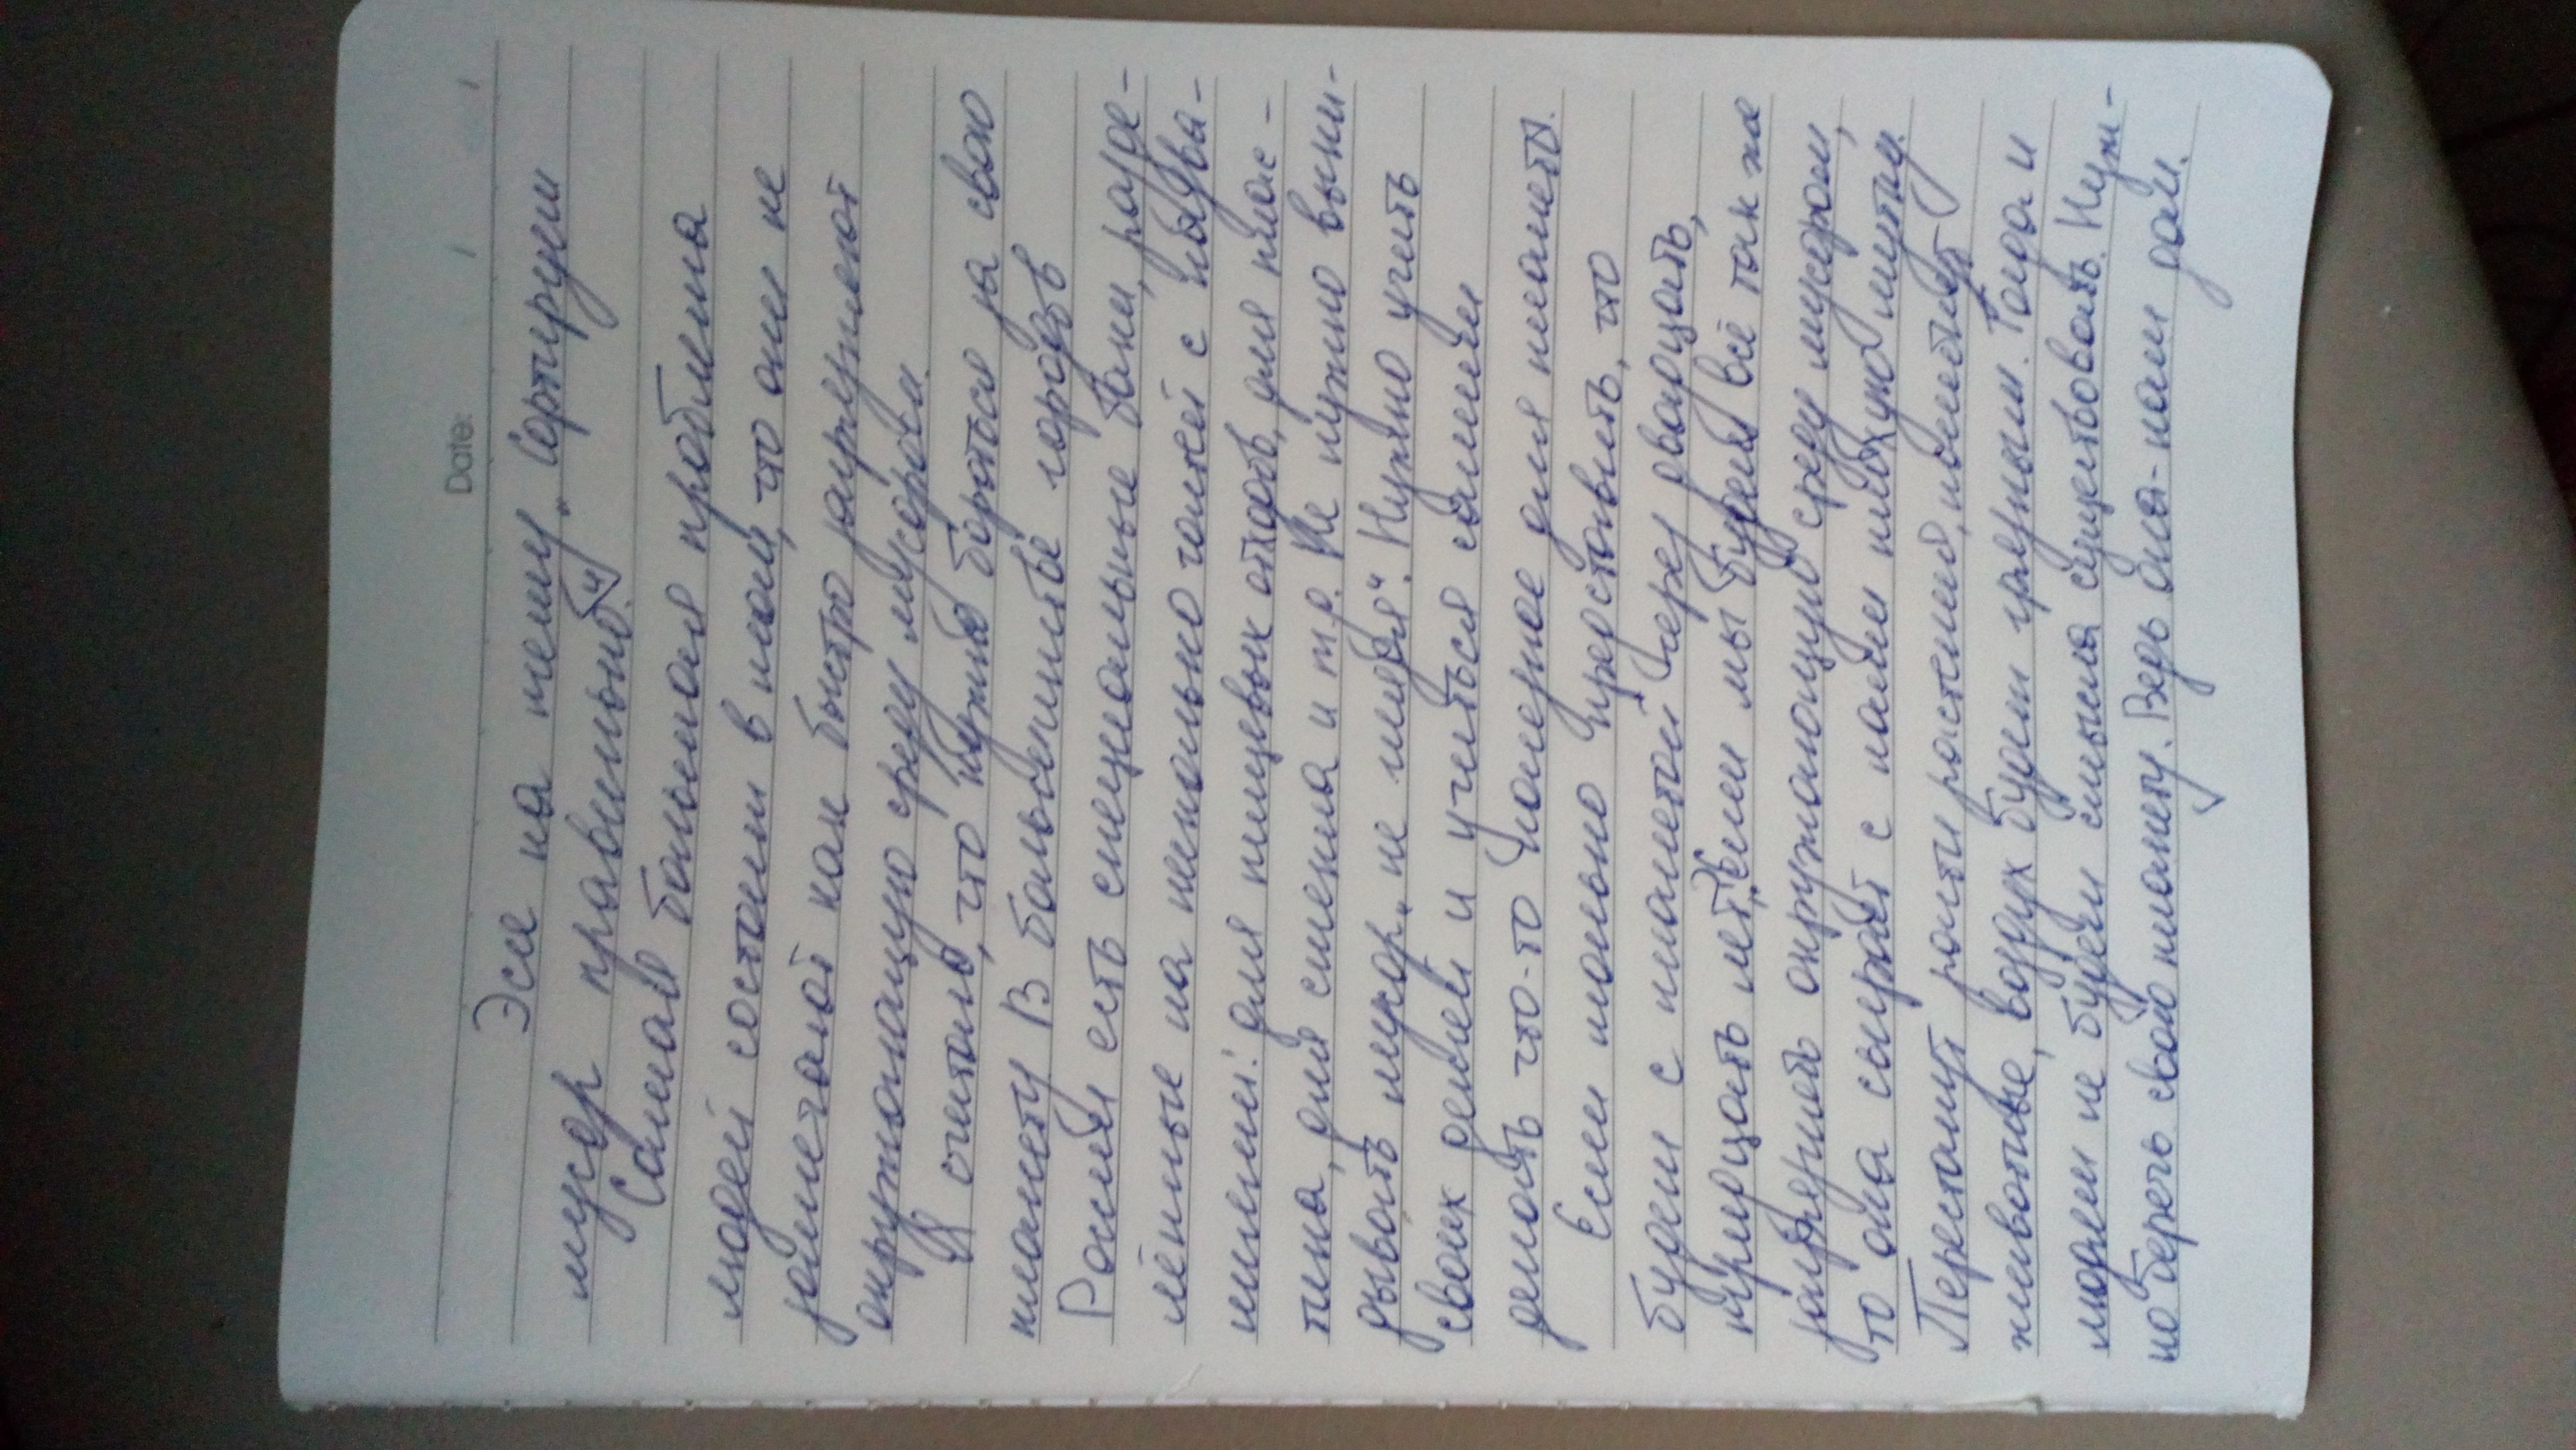 Date: / /
Эссе на тему „ Сортируем
мусор правильно."
Самая большая проблема
людей состоит в том, что они не
замечают как быстро загрязняют
окружающую среду мусором.
Я считаю, что нужно бороться за свою
планету. В большинстве городов
России есть специальные баки, разде-
лённые на несколько частей с назва-
ниями: для пищевых отходов, для плас-
тика, для стекла и т.д. Не нужно выки-
дывать мусор „ не глядя". Нужно учить
своих детей и учиться самим
делать что-то полезное для планеты.
Если только представить, что
будет с планетой через двадцать,
тридцать лет. Если мы будем всё так же
загрязнять окружающую среду мусором,
то она сыграет с нами плохую шутку.
Перестанут расти растения, исчезнут
животные, воздух будет грязным. Тогда и
людям не будет смысла существовать. Нуж-
но беречь свою планету. Ведь она-наш дом.